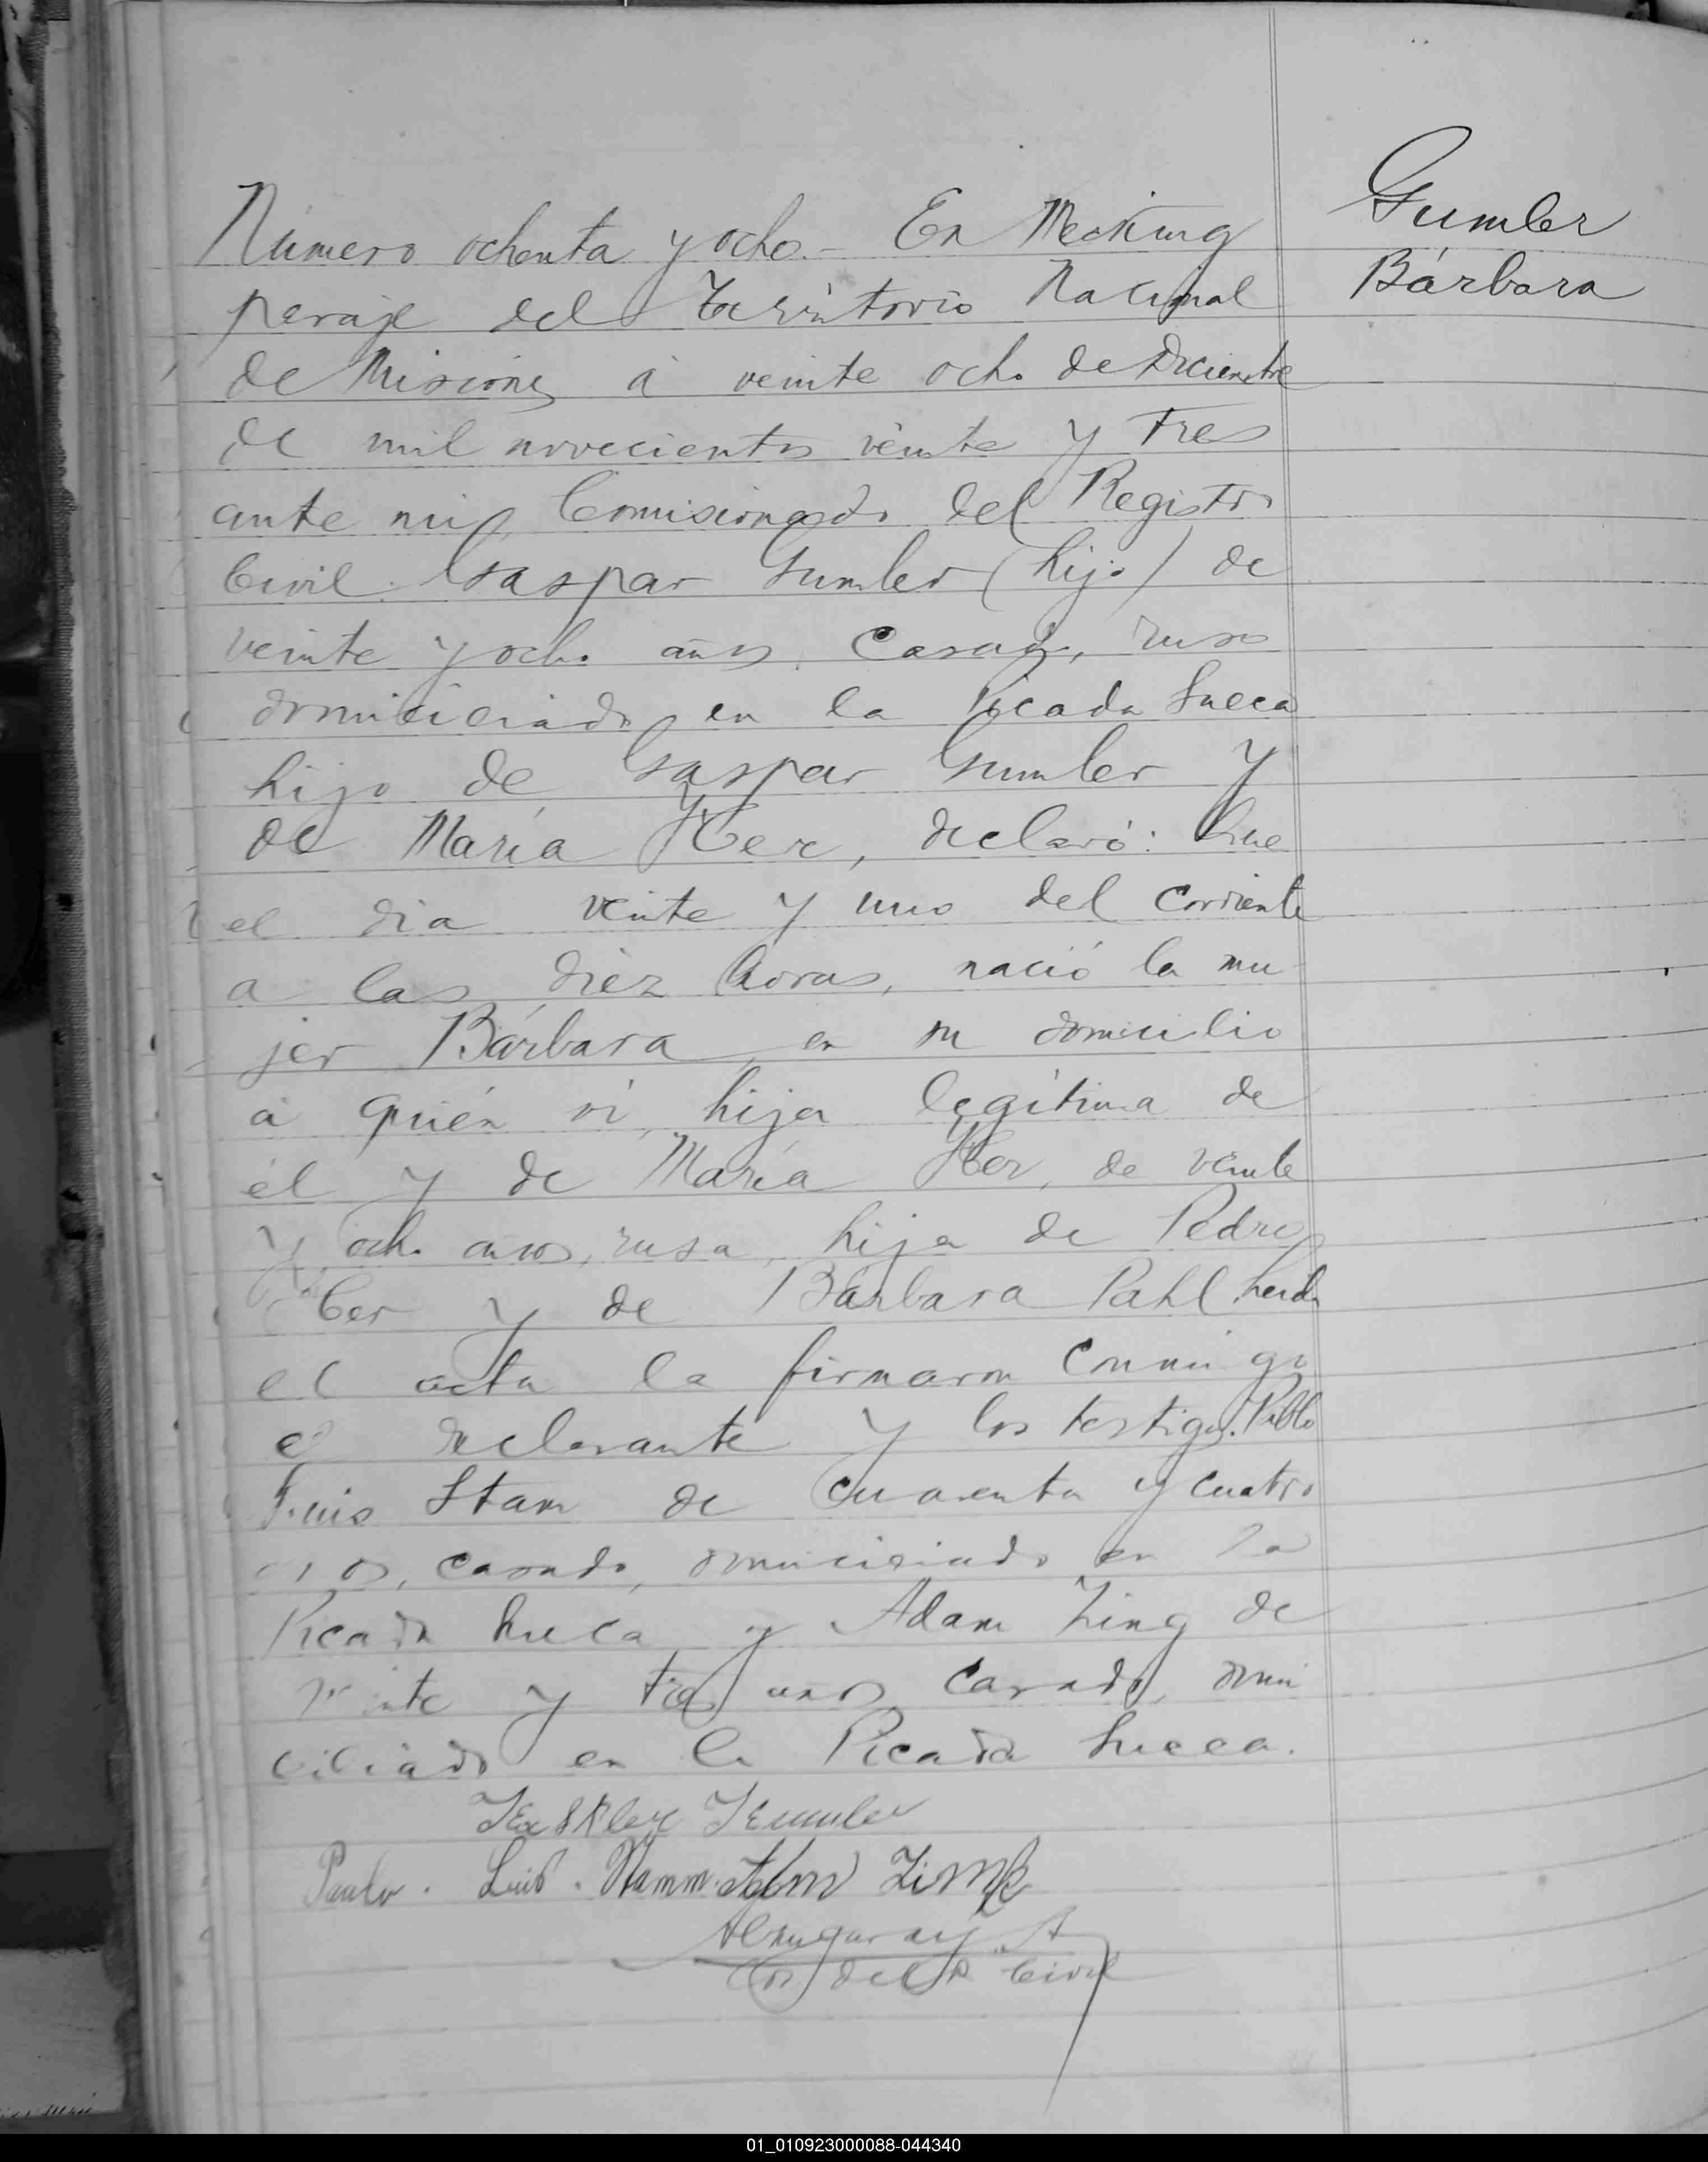 Gumler
Bárbara
Número ochenta y ocho.- En Mecking
paraje del Territorio Nacional
de Misiones a veinte ocho de Diciembre
de mil novecientos veinte y tres
ante mi, Comisionado del Registro
Civil. Gaspar Gumler (hijo) de
veinte y ocho años, casado, ruso
domiciliado en la Picada Sueca
hijo de Gaspar Gumler y
de María declaró: Que
el dia veinte y uno del corriente
a las diez horas, nació la mu
jer Bárbara, en su domicilio
a quién vi, hija legítima de
él y de María de veinte
y ocho años, rusa, hija de Pedro
y de Bárbara Pahl Leida
el acta la firmaron conmigo
el declarante y los testigos. Pablo
Luis Stam de cuarenta y cuatro
años, casado, domiciliado en la
Picada Sueca y Adam Zing de
veinte y tres años casado, domi
ciliado en la Picada Sueca.
Paulo. Luis. Stamm. Zimk
Del R Civil
01_010923000088-044340